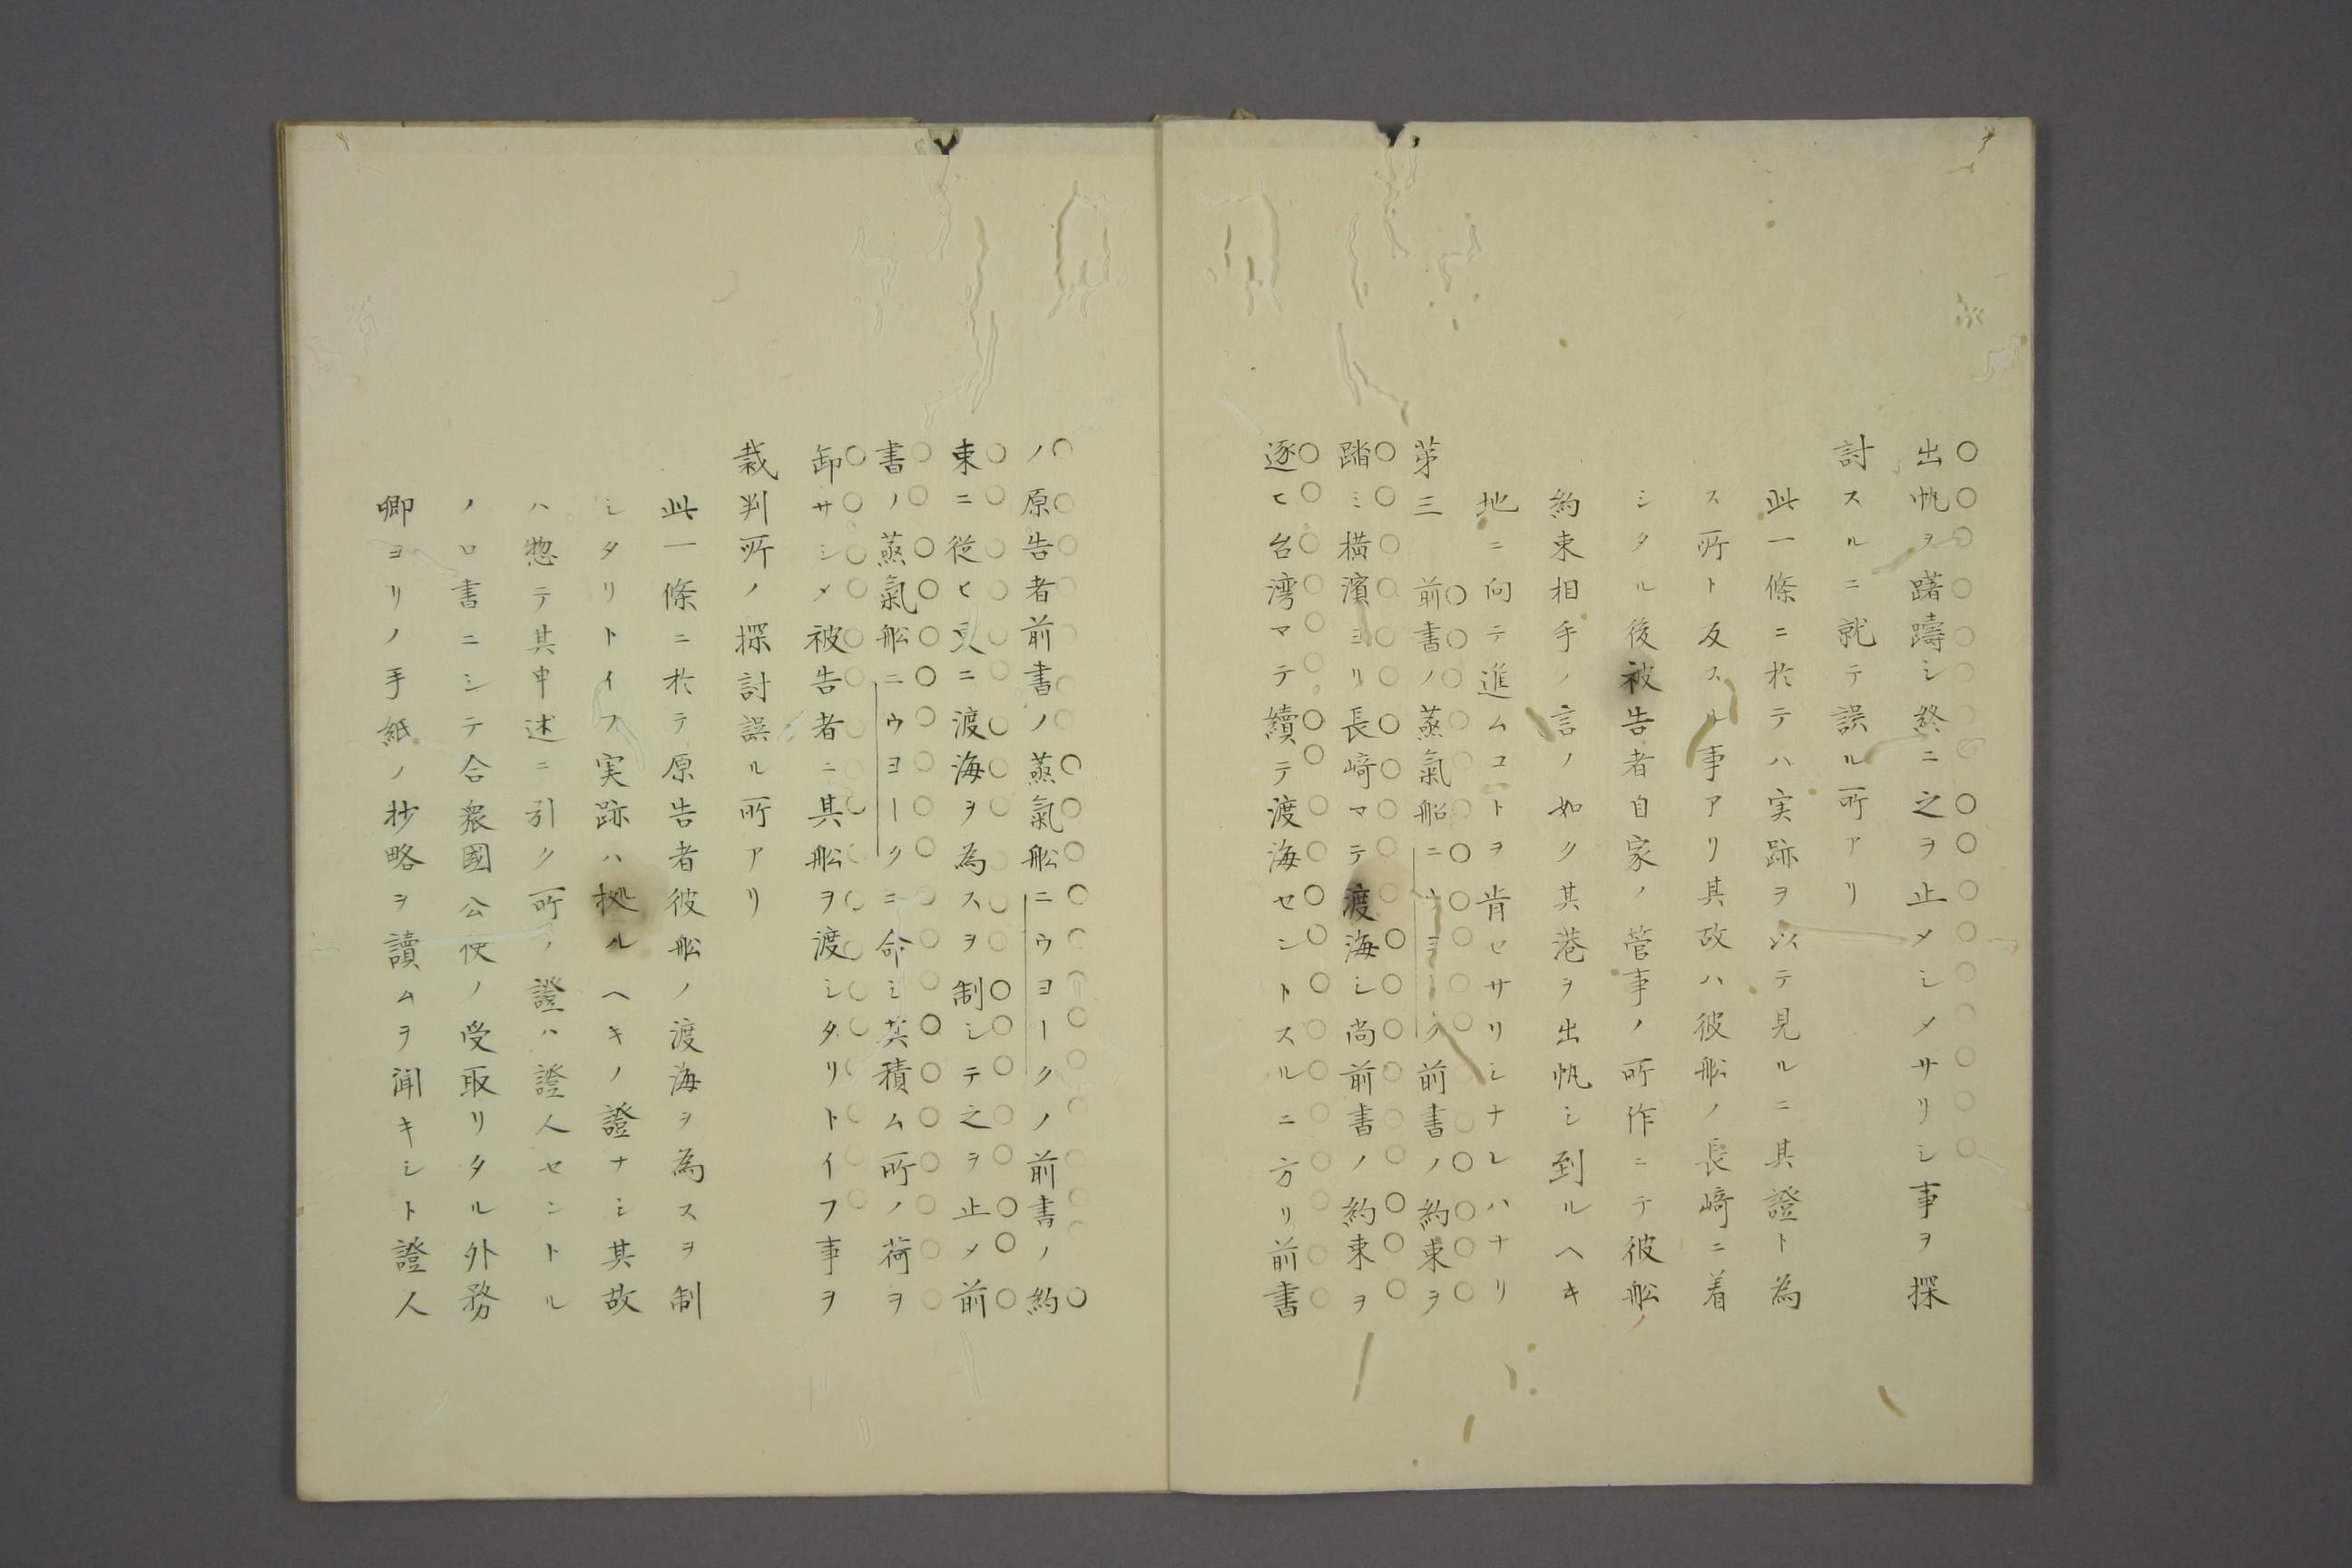 出帆ヲ躇躊シ終ニ之ヲ止メシメサリシ事ヲ探
討スルニ就テ誤ル所アリ
此一條ニ於テハ実跡ヲ以テ見ルニ其證ト為
ス所ト反スル事アリ其故ハ彼船ノ長﨑ニ着
シタル後被告者自家ノ管事ノ所作ニテ彼船ノ
約束相手ノ言ノ如ク其港ヲ出帆シ到ルヘキ
地ニ向テ進ムコトヲ肯セサリシナレハナリ
第三 前書ノ蒸氣船ニウヨーク前書ノ約束ヲ
踏ミ横濱ヨリ長﨑マテ渡海シ尚前書ノ約束ヲ
逐ヒ台湾マテ續テ渡海セントスルニ方リ前書
ノ原告者前書ノ蒸氣船ニウヨークノ前書ノ約
束ニ從ヒ更ニ渡海ヲ為スヲ制シテ之ヲ止メ前
書ノ蒸氣船ニウヨークニ命シ其積ム所ノ荷ヲ
卸サシメ被告者ニ其船ヲ渡シタリトイフ事ヲ
裁判所ノ探討誤ル所アリ
此一條ニ於テ原告者彼船ノ渡海ヲ為スヲ制
シタリトイフ実跡ハ拠ルヘキノ證ナシ其故
ハ惣テ其申述ニ引ク所ノ證ハ證人セントル
ノロ書ニシテ合衆國公使ノ受取リタル外務
卿ヨリノ手紙ノ抄略ヲ讀ムヲ聞キシト證人